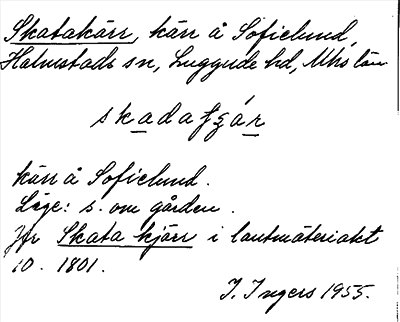 Skatakärr, kärr å Sofielund,
Halmstads sn, Luggude hd, Mhs län
skadafʒár
kärr å Sofielund.
Läge: s. om gården.
Jfr Skata kjärr i lantmäteriakt
10. 1801.
I. Ingers 1955.